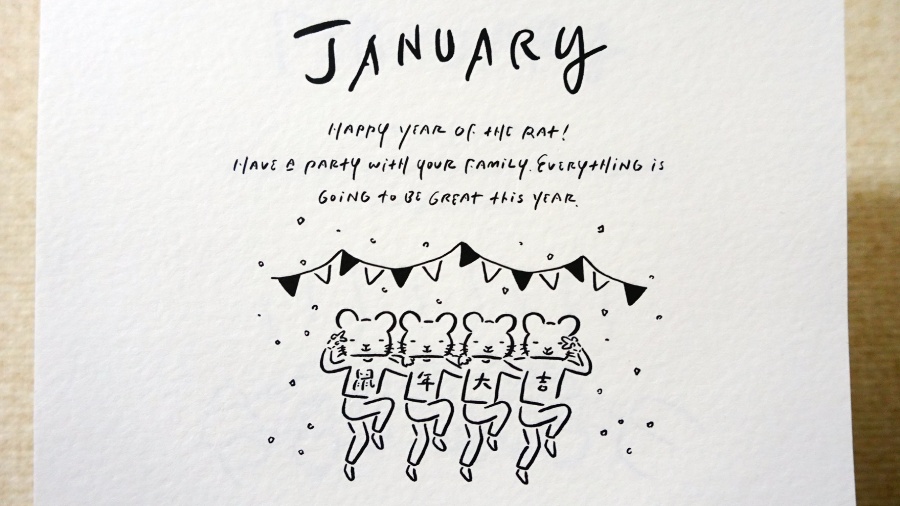 JANUARY
HAPPY YEAR OF THE RAT!
HAVE A PARTY WITH YOUR FAMILY. EVERYTHING IS
GOING TO BE GREAT THIS YEAR.
鼠年大吉